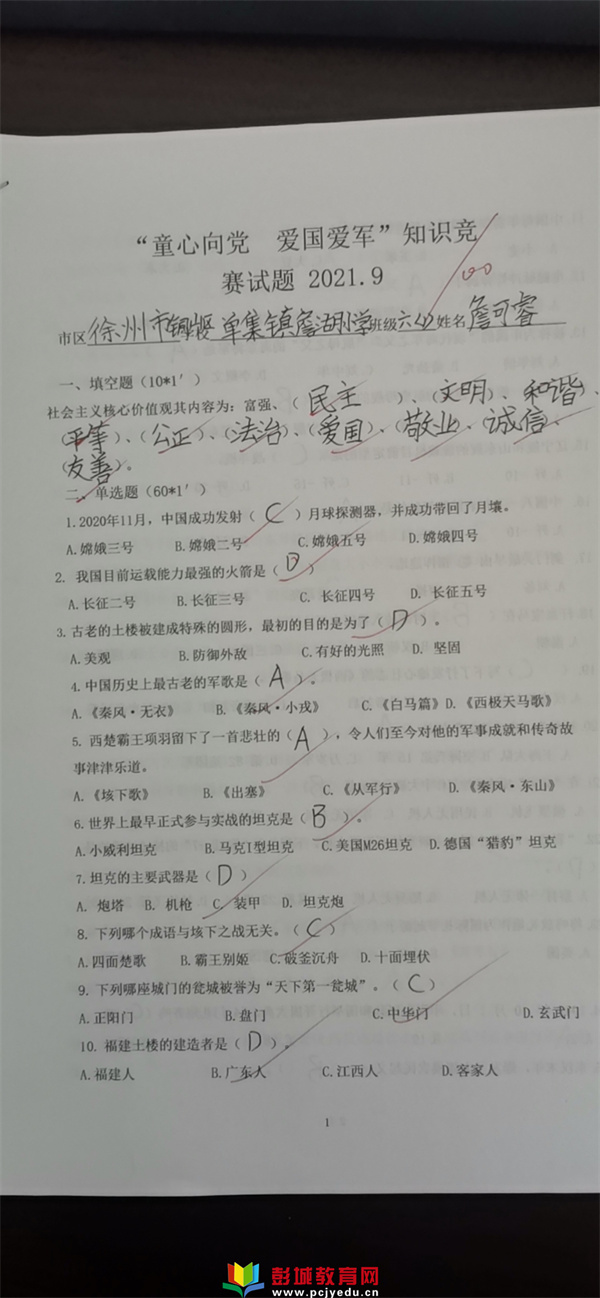 “童心向党 爱国爱军”知识竞
赛试题 2021.9
100
市区徐州市铜山区单集镇詹湖小学班级六(4)姓名詹可睿
一、填空题(10*1′)
社会主义核心价值观其内容为：富强、(民主)、(文明)、(和谐)、
(平等)、(公正)、(法治)、(爱国)、(敬业)、(诚信)、
(友善)。
二、单选题(60*1′)
1.2020年11月，中国成功发射( C )月球探测器，并成功带回了月壤。
A.嫦娥三号 B.嫦娥二号 C.嫦娥五号 D.嫦娥四号
2. 我国目前运载能力最强的火箭是( D )
A.长征二号 B.长征三号 C. 长征四号 D. 长征五号
3.古老的土楼被建成特殊的圆形，最初的目的是为了( D )。
A.美观 B.防御外敌 C.有好的光照 D. 坚固
4.中国历史上最古老的军歌是( A )。
A.《秦风·无衣》 B.《秦风·小戎》 C.《白马篇》 D.《西极天马歌》
5. 西楚霸王项羽留下了一首悲壮的( A )，令人们至今对他的军事成就和传奇故
事津津乐道。
A.《垓下歌》 B.《出塞》 C.《从军行》 D.《秦风·东山》
6.世界上最早正式参与实战的坦克是( B )。
A.小威利坦克 B.马克I型坦克 C.美国M26坦克 D.德国“猎豹”坦克
7.坦克的主要武器是( D )
A. 炮塔 B. 机枪 C. 装甲 D. 坦克炮
8. 下列哪个成语与垓下之战无关。( C )
A.四面楚歌 B.霸王别姬 C.破釜沉舟 D.十面埋伏
9. 下列哪座城门的瓮城被誉为“天下第一瓮城”。( C )
A.正阳门 B.盘门 C.中华门 D.玄武门
10. 福建土楼的建造者是( D )。
A.福建人 B.广东人 C.江西人 D.客家人
1
彭城教育网
www.pcjyedu.cn